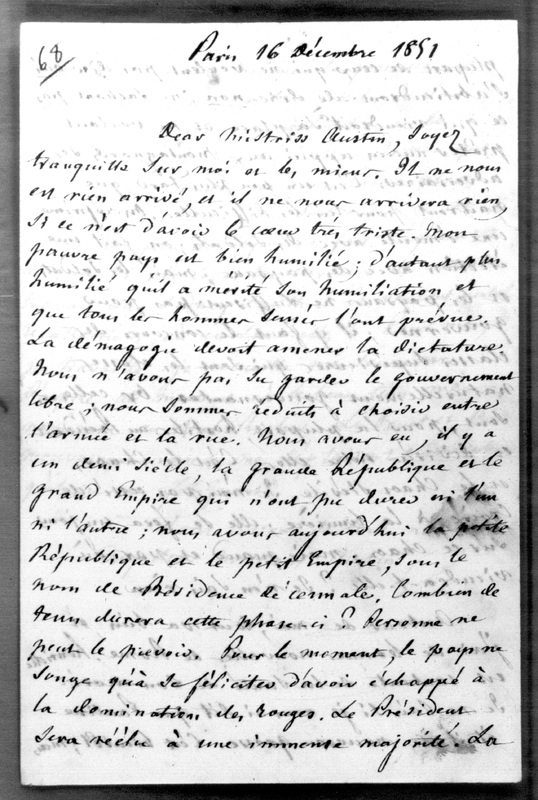 68
Paris 16 décembre 1851
Dear Mistriss Austin, Soyez
tranquille sur moi et les miens. Il ne nous
est rien arrivé, et il ne nous arrivera rien,
si ce n'est d'avoir le cœur très triste. Mon
pauvre pays est bien humilié ; d'autant plus
humilié qu'il a mérité son humiliation et
que tous les hommes sensés l'ont prévue.
La démagogie devoit amener la dictature.
Nous n'avons pas su garder le gouvernement
libre ; nous sommes réduits à choisir entre
l'armée et la rue. Nous avons eu, il y a
un demi siècle, la grande République et le
grand Empire qui n'ont pu durer ni l'un
ni l'autre ; nous avons aujourd'hui la petite
République et le petit Empire, sous le
nom de Présidence décennale. Combien de
tems durera cette phase-ci ? Personne ne
peut le prévoir. Pour le moment, le pays ne
songe qu'à se féliciter d'avoir échappé à
la domination des rouges. Le Président
sera réélu à une immense majorité. La